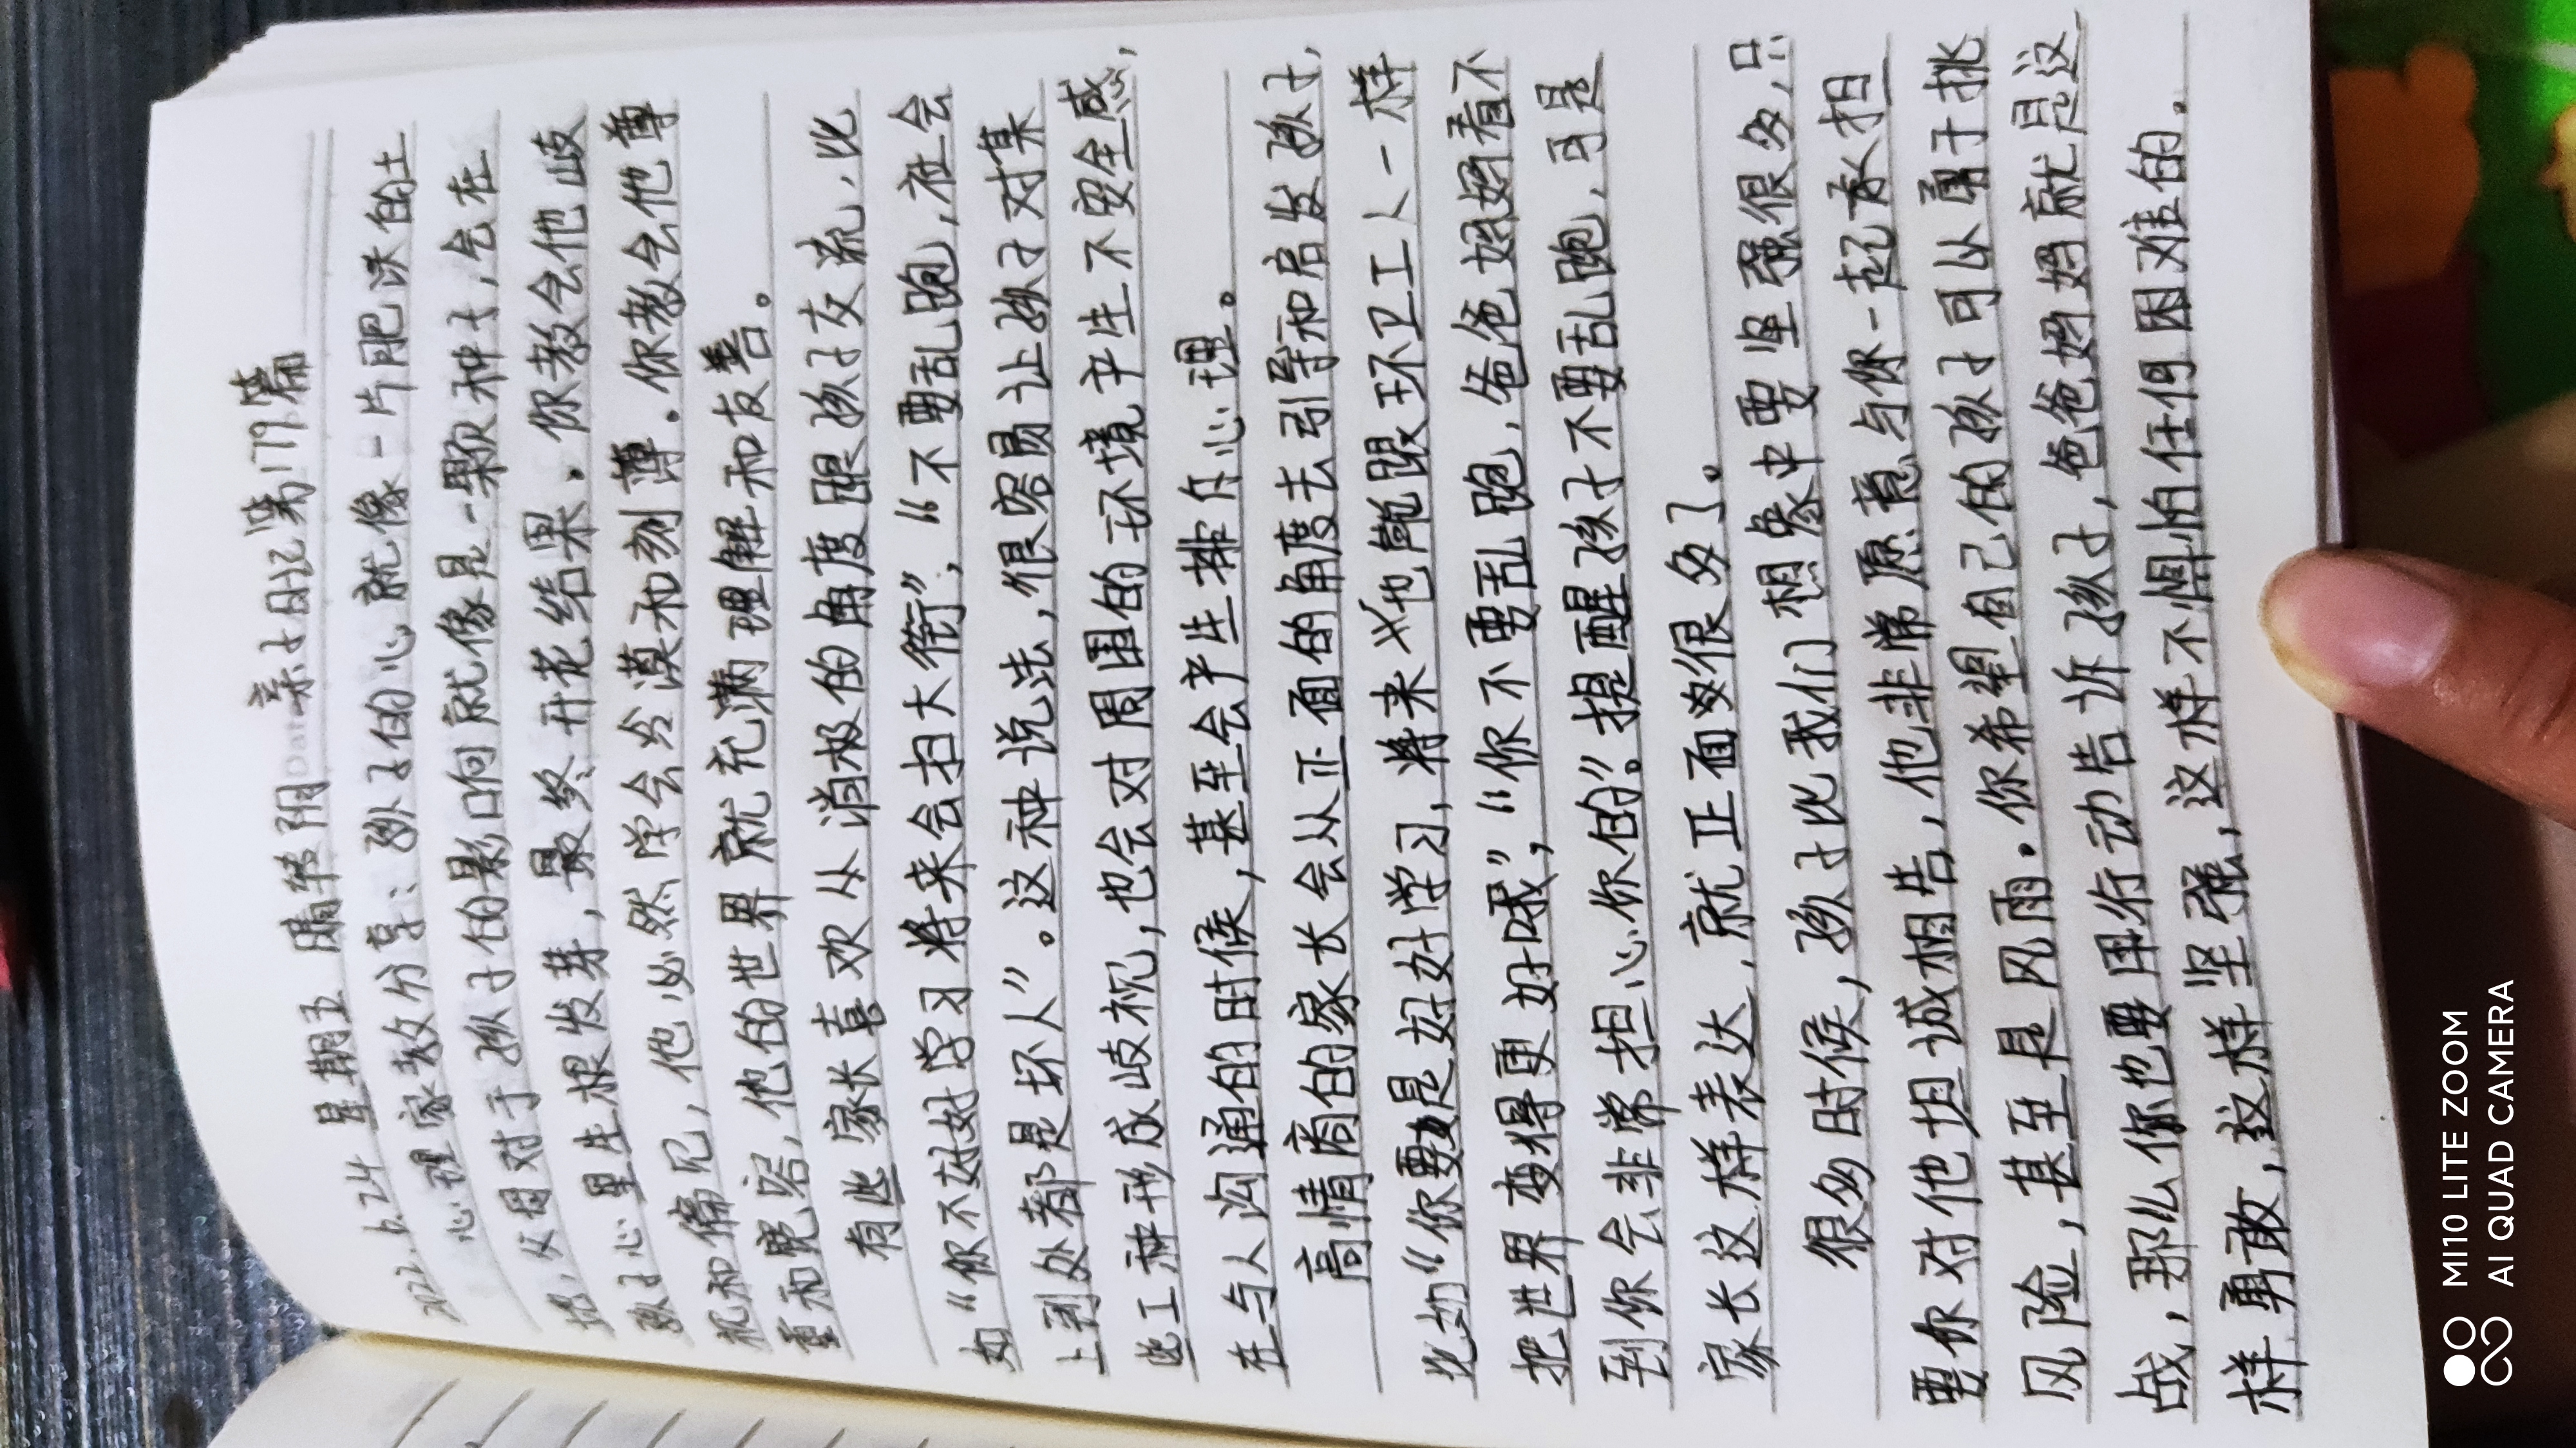 2022.6.24 星期五 晴转阴 亲子日记第179篇
心理家教分享：孩子的心，就像一片肥沃的土
壤，父母对于孩子的影响就像是一颗种子，会在
孩子心里生根发芽，最终开花结果。你教会他岐
视和偏见，他必然学会冷漠和刻薄。你教会他尊
重和宽容，他的世界就充满理解和友善。
有些家长喜欢从消极的角度跟孩子交流，比
如“你不好好学习将来会扫大街”，“不要乱跑，社会
上到处都是坏人”。这种说法，很容易让孩子对某
些工种形成歧视，也会对周围的环境产生不安全感，
在与人沟通的时候，甚至会产生排斥心理。
高情商的家长会从正面的角度去引导和启发孩子，
比如“你要是好好学习，将来也能跟环卫工人一样
把世界变得更好哦”，“你不要乱跑，爸爸妈妈看不
到你会非常担心你的”。提醒孩子不要乱跑，可是
家长这样表达，就正面多很多了。
很多时候，孩子比我们想象中要坚强很多，只
要你对他坦诚相告，他非常愿意与你一起承担
风险，甚至是风雨。你希望自己的孩子可以勇于挑
战，那么你也要用行动告诉孩子，爸爸妈妈就是这
样勇敢，这样坚强，这样不惧怕任何困难的。
MI10 LITE ZOOM
AI QUAD CAMERA